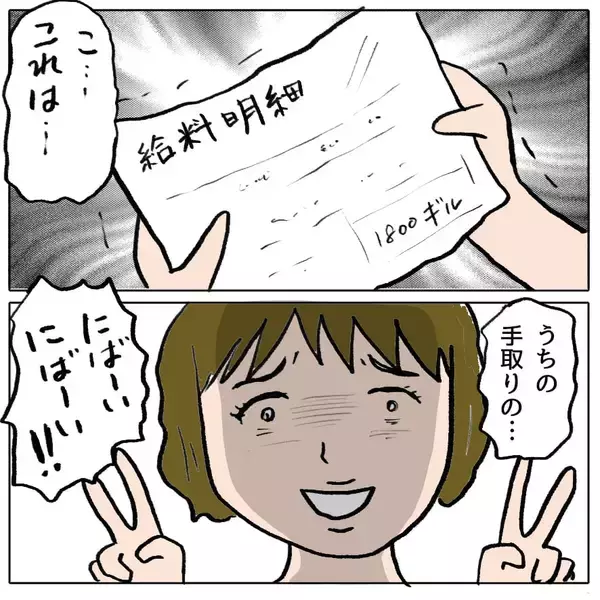 こ…
これは…
給料明細
1800ギル
うちの
手取りの…
にばーい
にばーい
!!